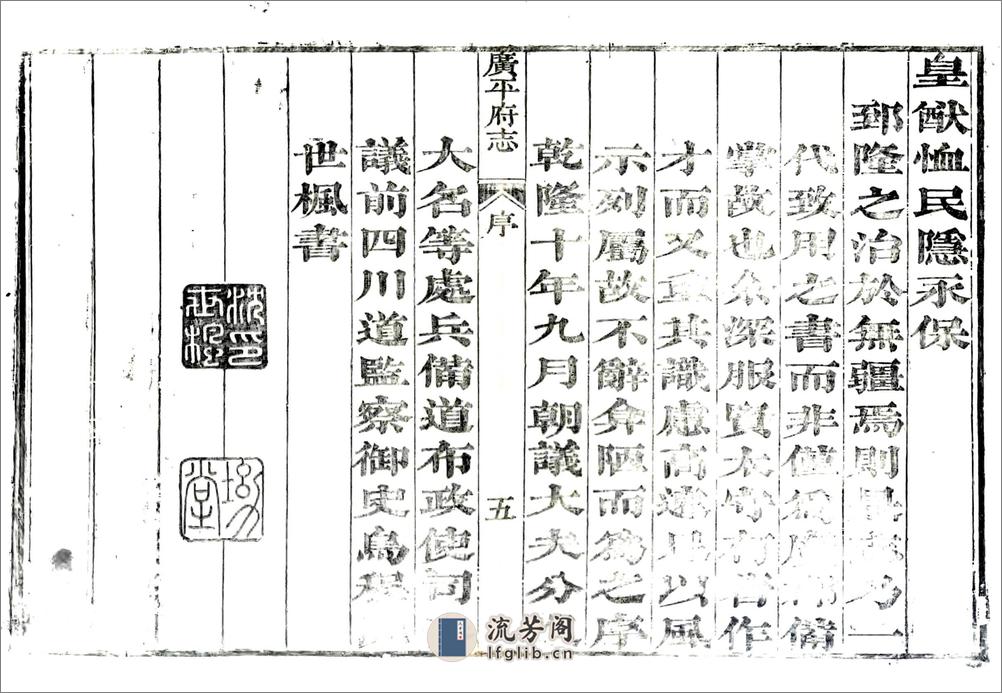 皇猷恤民隱永保
郅隆之治於無疆焉則是志乃一
代致用之書而非僅備
掌故也余深服賀太守有作
才而又重其識慮高遠以風
示刻屬故不辭弇陋而為之序
乾隆十年九月朝議大夫分
廣平府志
序
五
大名等處兵備道布政使司
議前四川道監察御史烏程
世楓書
沈印世楓
堂
流芳阁
lfglib.cn